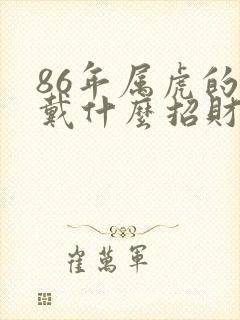 86年属虎的
戴什麼招財
崔萬軍